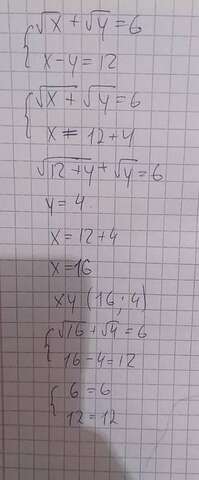 { √x + √y = 6
x - y = 12
{ √x + √y = 6
x = 12 + y
√12+y + √y = 6
y = 4.
x = 12 + 4
x = 16
xy (16; 4)
{ √16 + √4 = 6
16 - 4 = 12
{ 6 = 6
12 = 12